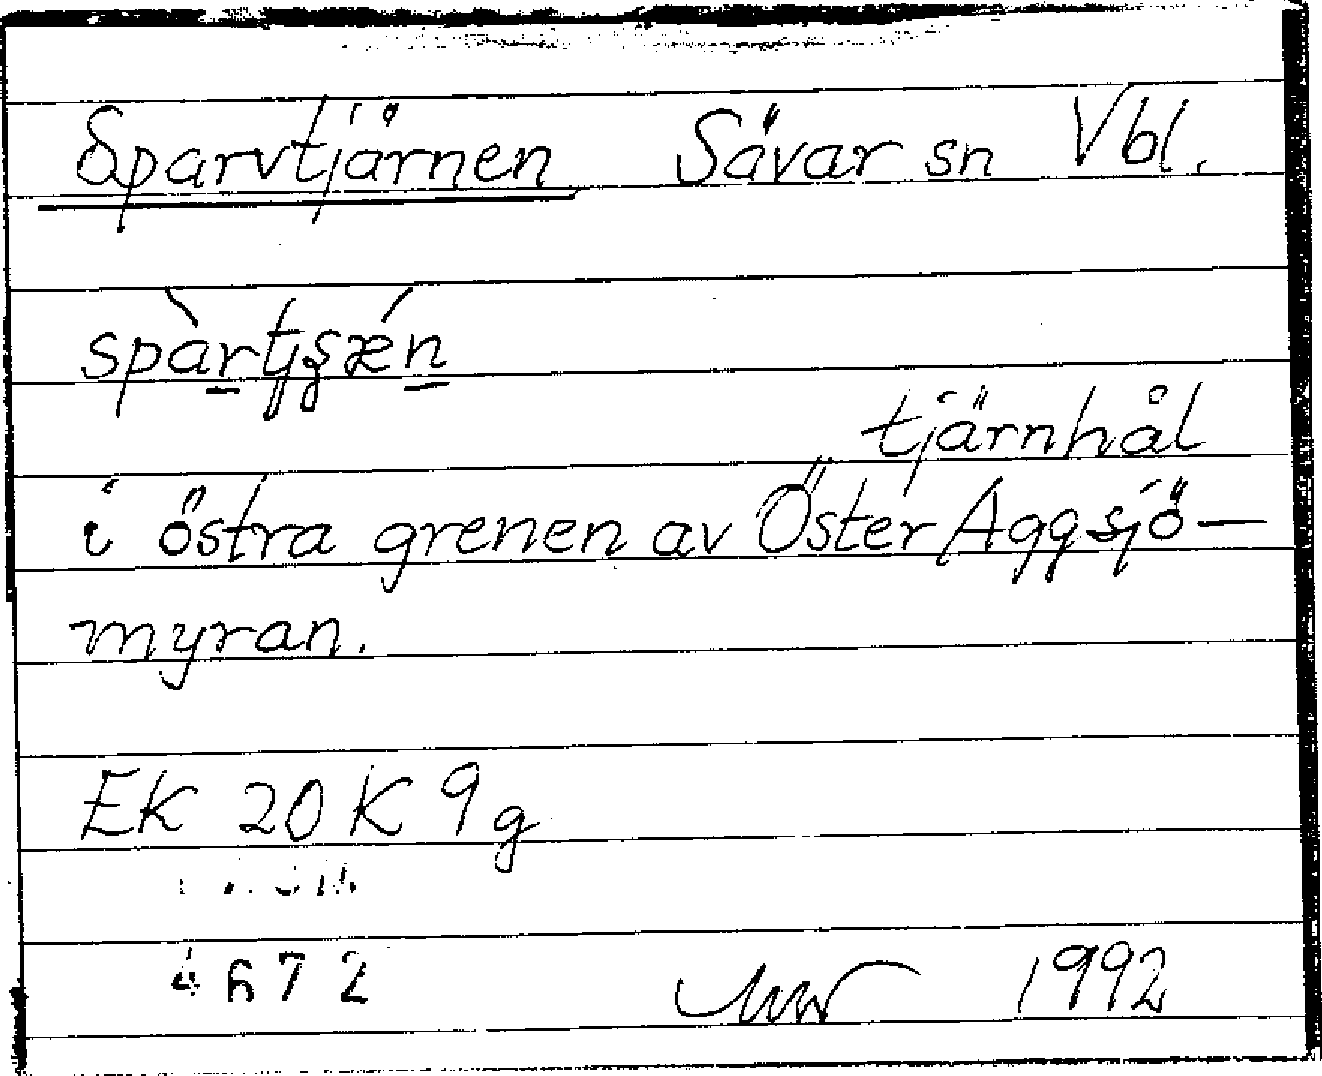 Sparvtjärnen Sävar sn Vbl.
tjärnhål
i östra grenen av Öster Aggsjö-
myran.
EK 20 K 9g
4672 1992